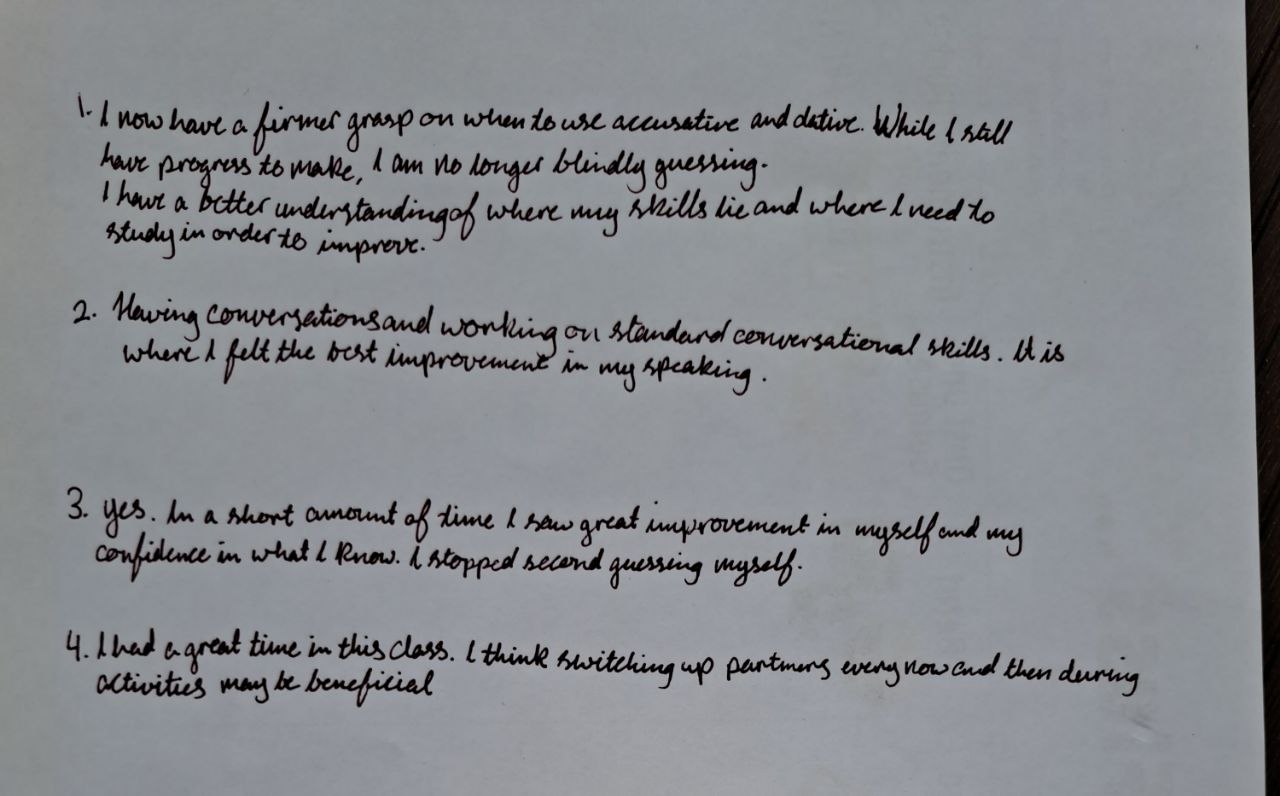 1. I now have a firmer grasp on when to use accusative and dative. While I still
have progress to make, I am no longer blindly guessing.
I have a better understanding of where my skills lie and where I need to
study in order to improve.
2. Having conversations and working on standard conversational skills. It is
where I felt the best improvement in my speaking.
3. yes. In a short amount of time I saw great improvement in myself and my
confidence in what I know. I stopped second guessing myself.
4. I had a great time in this class. I think switching up partners every now and then during
activities may be beneficial